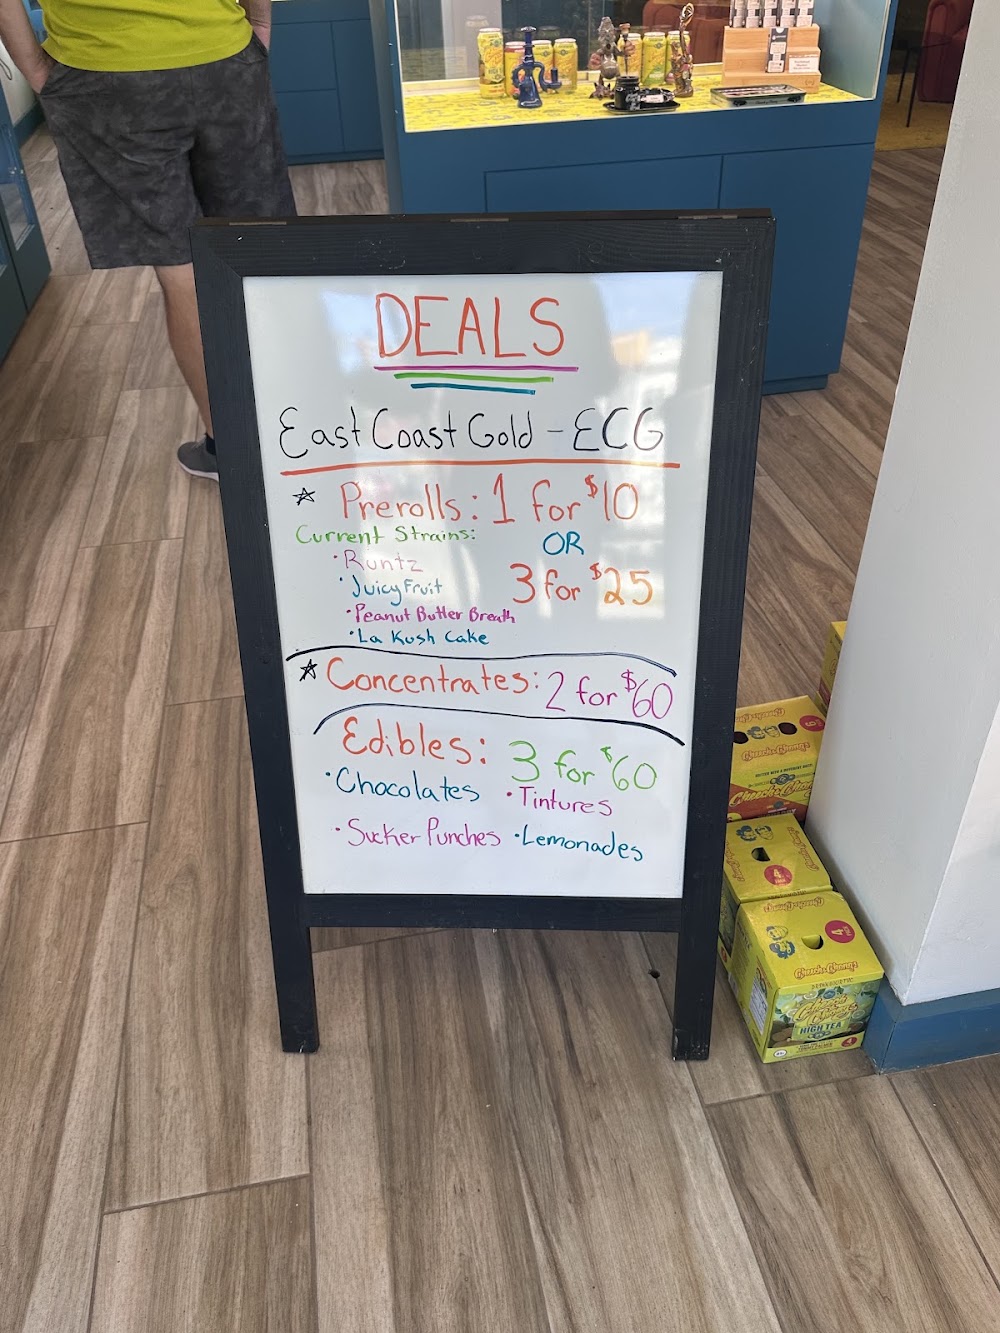 DEALS
East Coast Gold - ECG
☆ Prerolls: 1 for $10
Current Strains:
OR
• Runtz
• Juicy Fruit
3 for $25
• Peanut Butter Breath
• La Kush Cake
☆ Concentrates: 2 for $60
Edibles: 3 for $60
• Chocolates
• Tintures
• Sucker Punches
• Lemonades
Cheech & Chong's
Cheech & Chong's
4
Cheech & Chong's
4
Cheech & Chong's
HIGH TEA
4